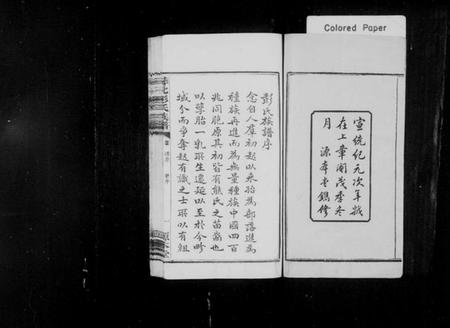 Colored Paper
宣統紀元次年歲
在上章閹茂季冬
月 源本堂鐫修
彭氏族譜序
念自人羣初起以來始為部落進為
種族再進而為無量種族中國四百
兆同胞原其初皆有熊氏之苗裔也
以孳胎一乳聯生遞延以至於今畛
域分而爭奪起有識之士聯以有組
彭氏族譜